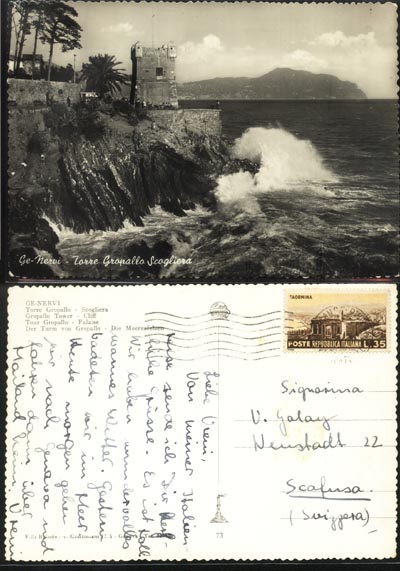 Ge-Nervi - Torre Gropallo Scogliera
GE-NERVI
Torre Gropallo - Scogliera
Gropallo Tower - Cliff
Tour Gropallo - Falaise
Der Turm von Gropallo - Die Meeresfelsen
TAORMINA
POSTE REPUBBLICA ITALIANA L. 35
Liebe Vreni,
Von meiner Italien-
reise sende ich Dir
Grüsse. Es ist
Wir haben wundervolles
warmes Wetter. Gestern
badeten wir im Meer
Heute morgen gehen
wir nach Genova und
fahren dann über
Mailand heim
Signorina
V.
Neustadt 22
Scafusa
(Svizzera)
73